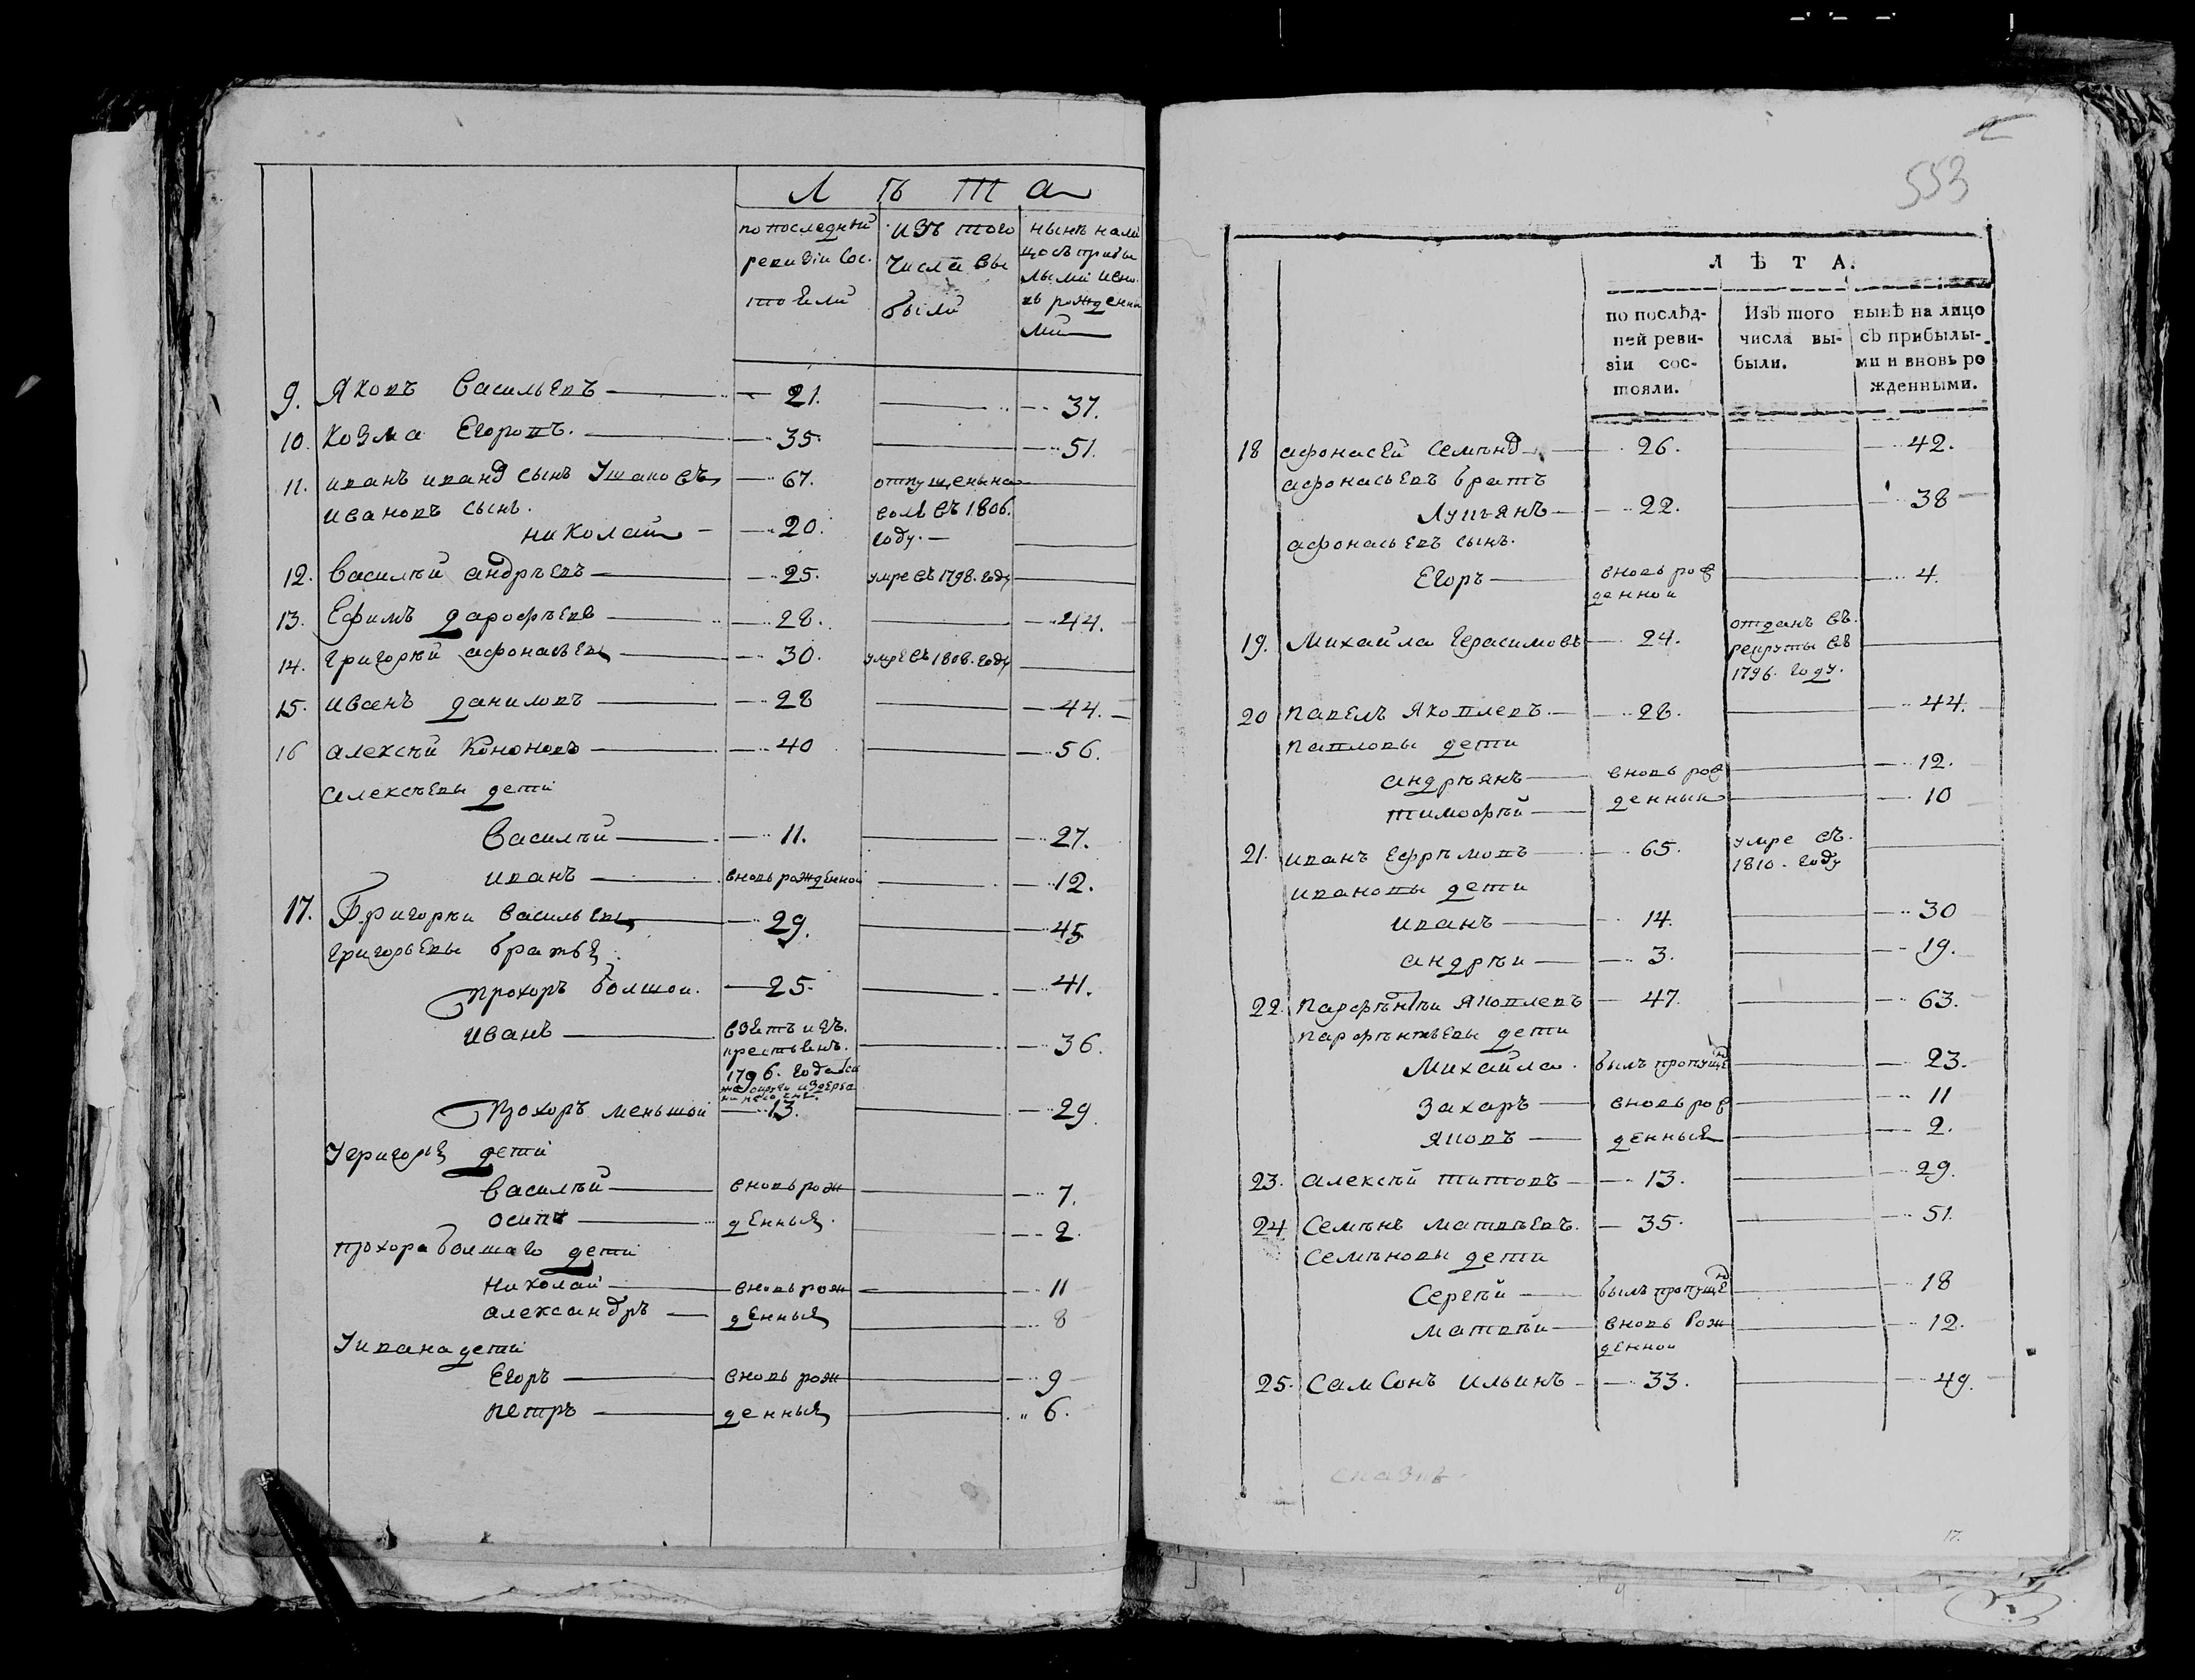 Л ѣ т а
по последней | изъ того | нынѣ нали
ревизіи сос- | числа вы | цо съ прибы
тоели | были | лыми и вно-
въ рожденны
ми
9. Яковъ Васильевъ — 21. — 37.
10. Козма Егоровъ. — 35. — 51.
11. иванъ иванд сынъ Ушаковъ — 67. отпущены на —
ивановъ сынъ. волю въ 1806.
николай — 20. году. —
12. Василѣй андрѣевъ — 25. умре въ 1798. году —
13. Ефимъ дарофѣевъ — 28. — 44.
14. григорѣй афонасьевъ — 30. умре въ 1808. году —
15. иванъ даниловъ — 28 — 44.
16 алексѣй Кононовъ — 40 — 56.
алексѣевы дети
Василѣй — 11. — 27.
иванъ — вновь рожденной — 12.
17. Григорѣи васильевъ — 29. — 45
григорьевы братьѣ.
прохоръ болшои. — 25. — 41.
иванъ — взетъ изъ
крестьянъ.
1796. года — 36.
Прохоръ меньшой — 13. — 29
У григорья дети
Василѣй — вновь рож — 7.
осипъ — денныя. — 2.
прохора болшаго дети
николай — вновь рож — 11
александръ — денныя — 8
У ивана дети
Егоръ — вновь рож — 9
петръ — денныя — 6.
553
Л Ѣ Т А.
по послѣд- | Изъ того | нынѣ на лицо
ней реви- | числа вы- | съ прибылы-
зіи сос- | были. | ми и вновь ро
тояли. | жденными.
18 афонасей семѣнд — 26. — 42.
афонасьевъ братъ
Лупьянъ — 22. — 38
афонасьевъ сынъ.
Егоръ — вновь рож — 4.
денной
19. Михайла Герасимовъ — 24. отданъ въ
рекруты въ —
1796. году.
20 павелъ яковлевъ. — 28. — 44.
павловы дети
андрѣянъ — вновь рож — 12.
тимофѣй — денныи — 10
21. иванъ Ефрѣмовъ — 65. умре въ. —
1810. году
ивановы дети
иванъ — 14. — 30
андрѣи — 3. — 19.
22. парфѣнтѣи яковлевъ — 47. — 63.
парфѣнтьевы дети
Михайла. былъ пропущенд — 23.
Захаръ — вновь рож — 11
яковъ — денныя — 2.
23. алексѣй титовъ — 13. — 29.
24 Семѣнъ матвѣевъ. — 35. — 51.
Семѣновы дети
Сергѣй — былъ пропущенд — 18
матвѣи — вновь рож — 12.
денной
25. Самсонъ ильинъ — 33. — 49.
17.